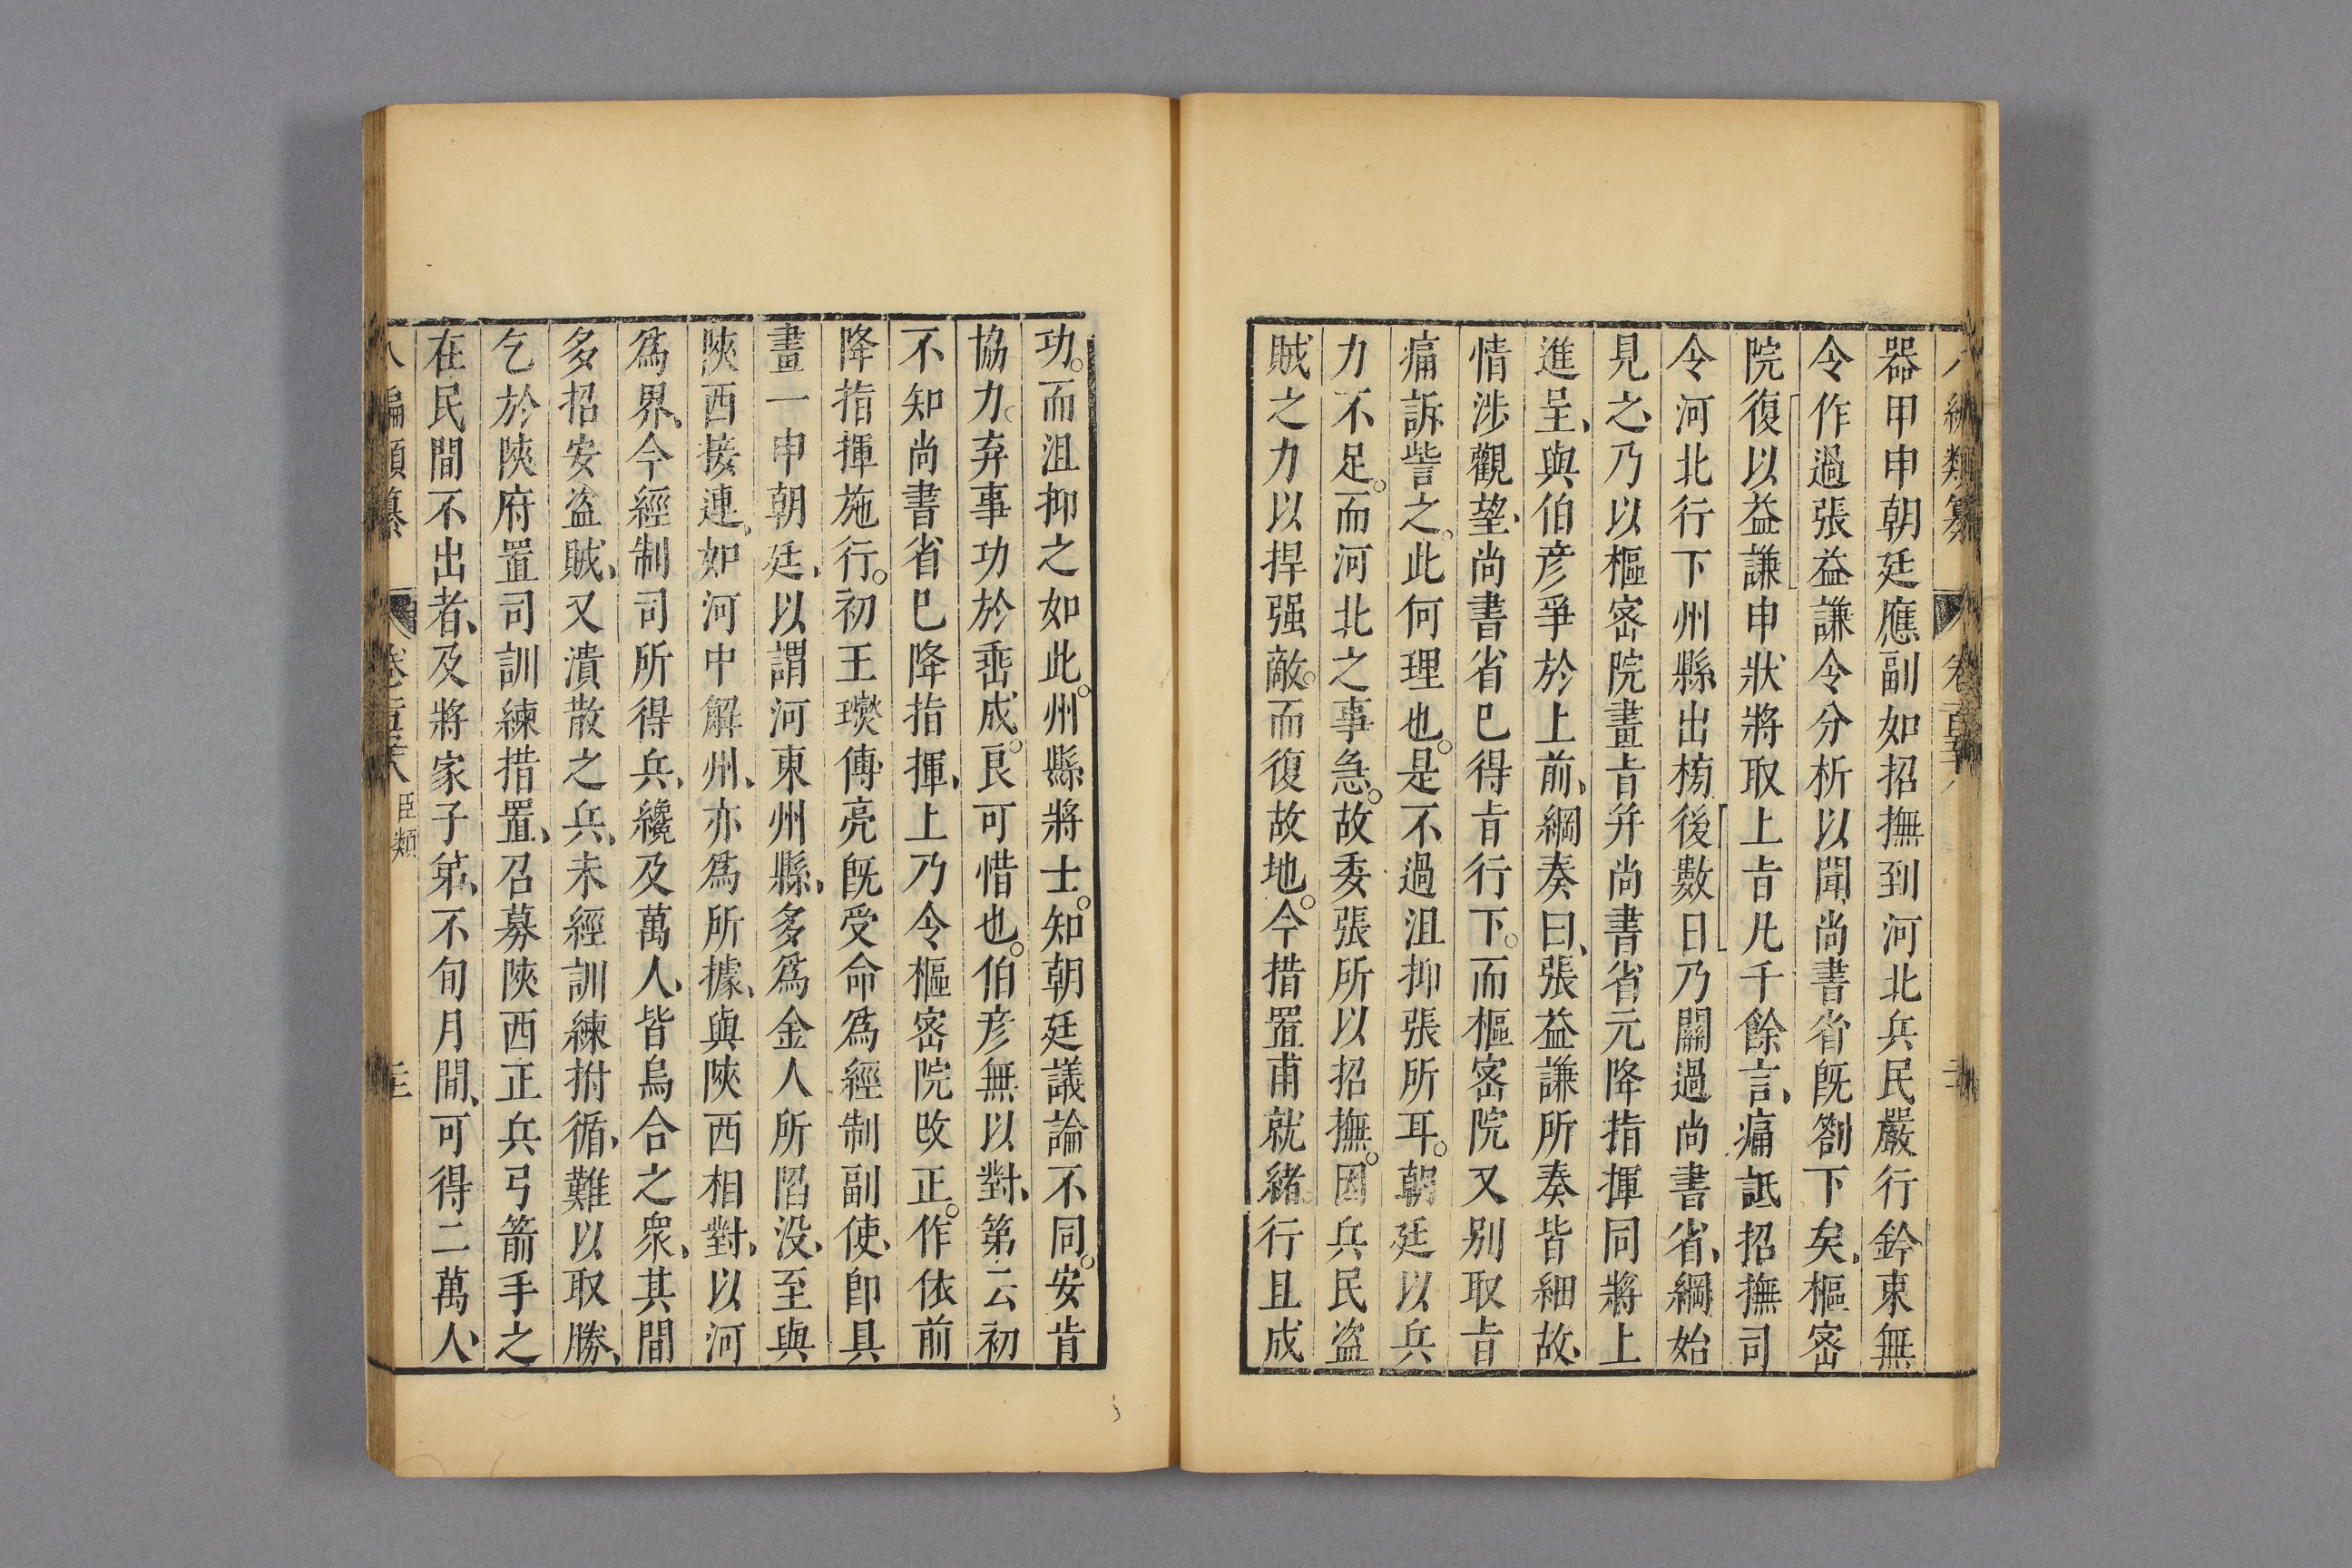 器甲申朝廷應副如招撫到河北兵民嚴行鈐束無
令作過張益謙令分析以聞尚書省既劄下矣樞密
院復以益謙申狀將取上旨凡千餘言痛詆招撫司
令河北行下州縣出榜後數日乃關過尚書省綱始
見之乃以樞密院畫旨并尚書省元降指揮同將上
進呈與伯彦爭於上前綱奏曰張益謙所奏皆細故
情涉觀望尚書省巳得旨行下而樞密院又别取旨
痛訴訾之此何理也是不過沮抑張所耳朝廷以兵
力不足而河北之事急故委張所以招撫因兵民盗
賊之力以捍强敵而復故地今措置甫就緒行且成
功而沮抑之如此州縣將士知朝廷議論不同安肯
協力弃事功於垂成良可惜也伯彦無以對第云初
不知尚書省巳降指揮上乃令樞密院改正作依前
降指揮施行初王𤫉傅亮既受命爲經制副使卽具
畫一申朝廷以謂河東州縣多爲金人所陷没至與
陝西接連如河中解州亦爲所據與陝西相對以河
爲界今經制司所得兵纔及萬人皆烏合之衆其間
多招安盗賊又潰散之兵未經訓練拊循難以取勝
乞於陝府置司訓練措置召募陝西正兵弓箭手之
在民間不出者及將家子弟不旬月間可得二萬人
編類纂 卷 臣類